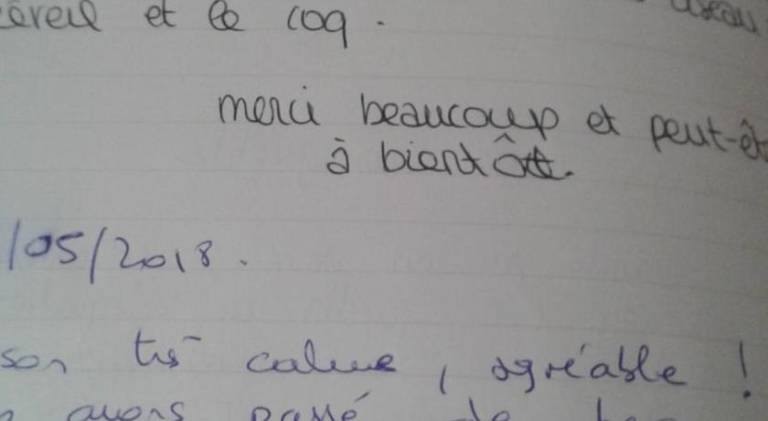 et le coq.
merci beaucoup et peut-êt
à bientôt.
/05/2018.
son très calme, agréable !
avons passé de